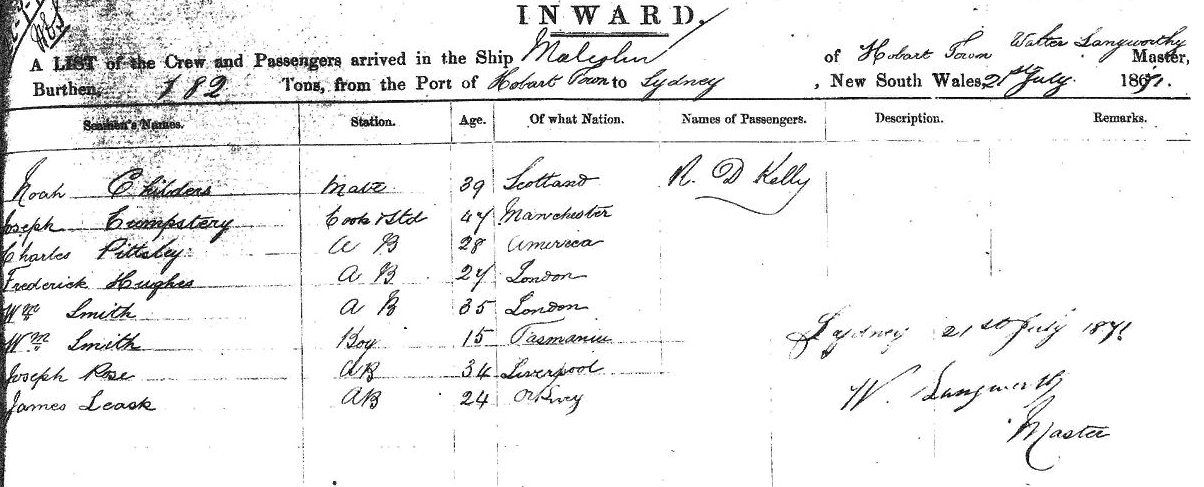 INWARD.
A LIST of the Crew and Passengers arrived in the Ship Malcolm of Hobart Town Walter Langworthy Master,
Burthen, 182 Tons, from the Port of Hobart Town to Sydney, New South Wales, 21st July 1871.
Seamen's Names. Station. Age. Of what Nation. Names of Passengers. Description. Remarks.
Noah Childers Mate 39 Scotland R. D Kelly
Joseph Cumpstery Cook & Std 47 Manchester
Charles Pittsley A B 28 America
Frederick Hughes A B 27 London
Wm Smith A B 35 London
Wm Smith Boy 15 Tasmania Sydney 21st July 1871
Joseph Rose AB 34 Liverpool
James Leask AB 24 Orkney W. Langworth
Master